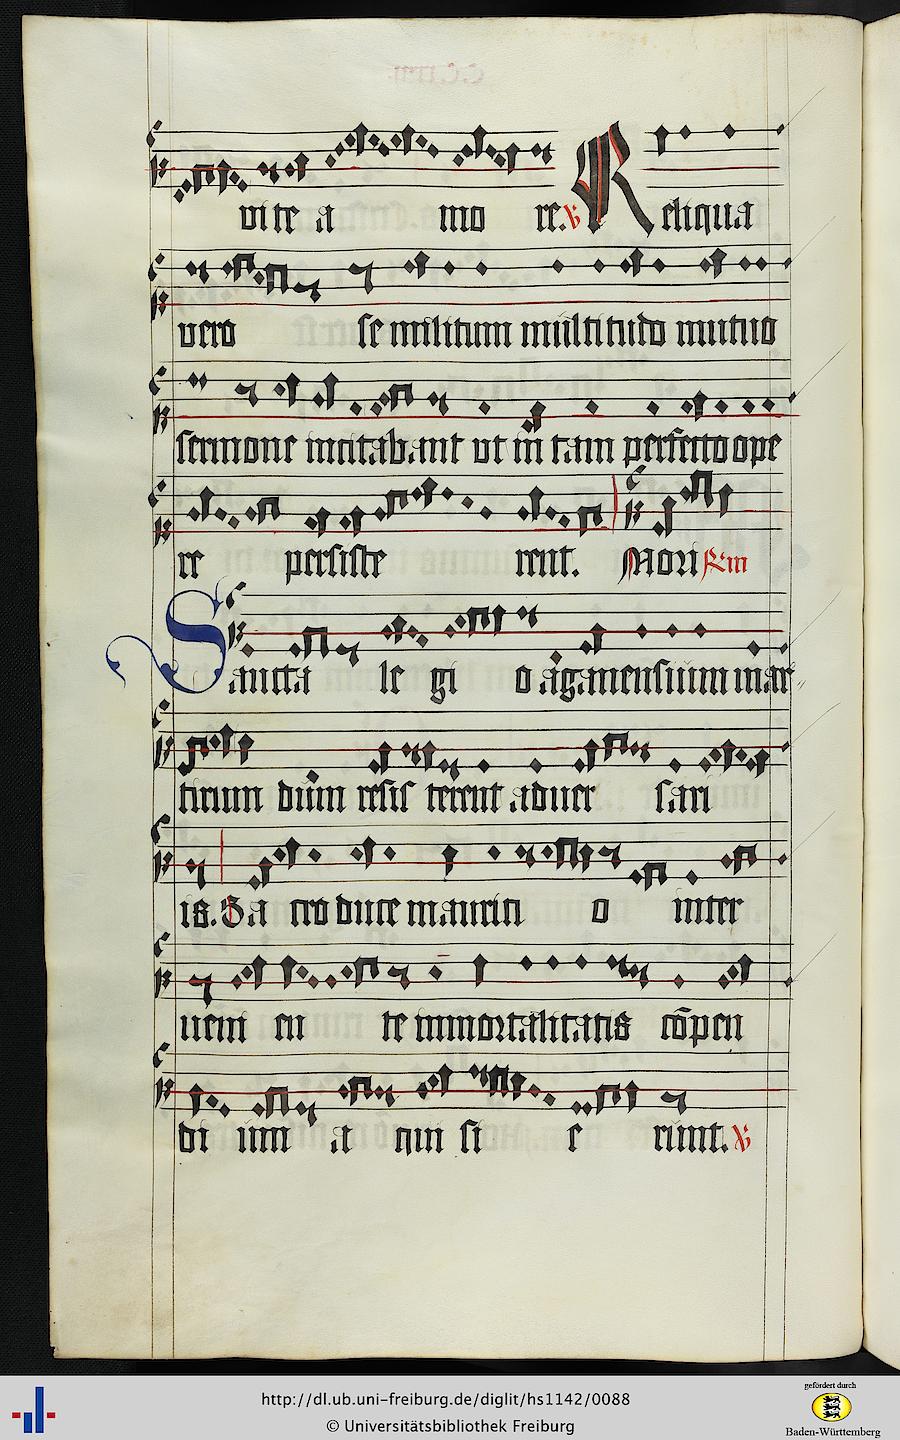 vite a mo re. ℣ Reliqua
vero se militum multitudo mutuo
sermone incitabant ut in tam perfecto ope
re persiste rent. Mori ℟ iii
Sancta le gi o aganensium mar
tirum dum resis terent aduer sari
is. Sa cro duce mauricii o inter
uent en te immortalitatis cōpen
di um a qui si e runt. ℣
gefördert durch
http://dl.ub.uni-freiburg.de/diglit/hs1142/0088
© Universitätsbibliothek Freiburg
Baden-Württemberg